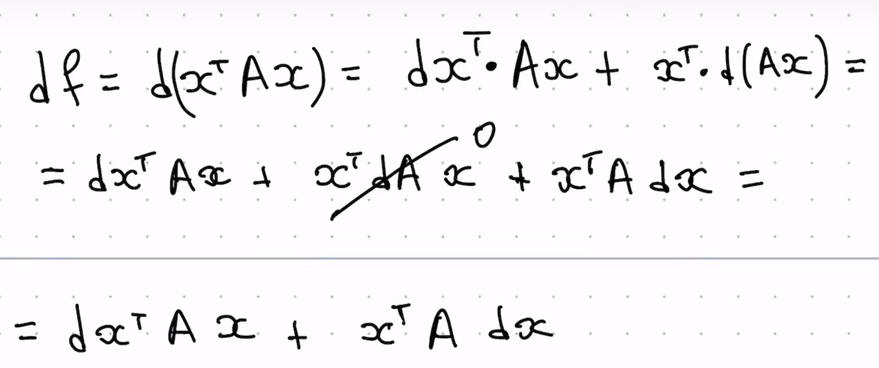 df = d(xᵀAx) = dxᵀ·Ax + xᵀ·d(Ax) =
= dxᵀAx + xᵀdAx⁰ + xᵀAdx =
= dxᵀAx + xᵀAdx